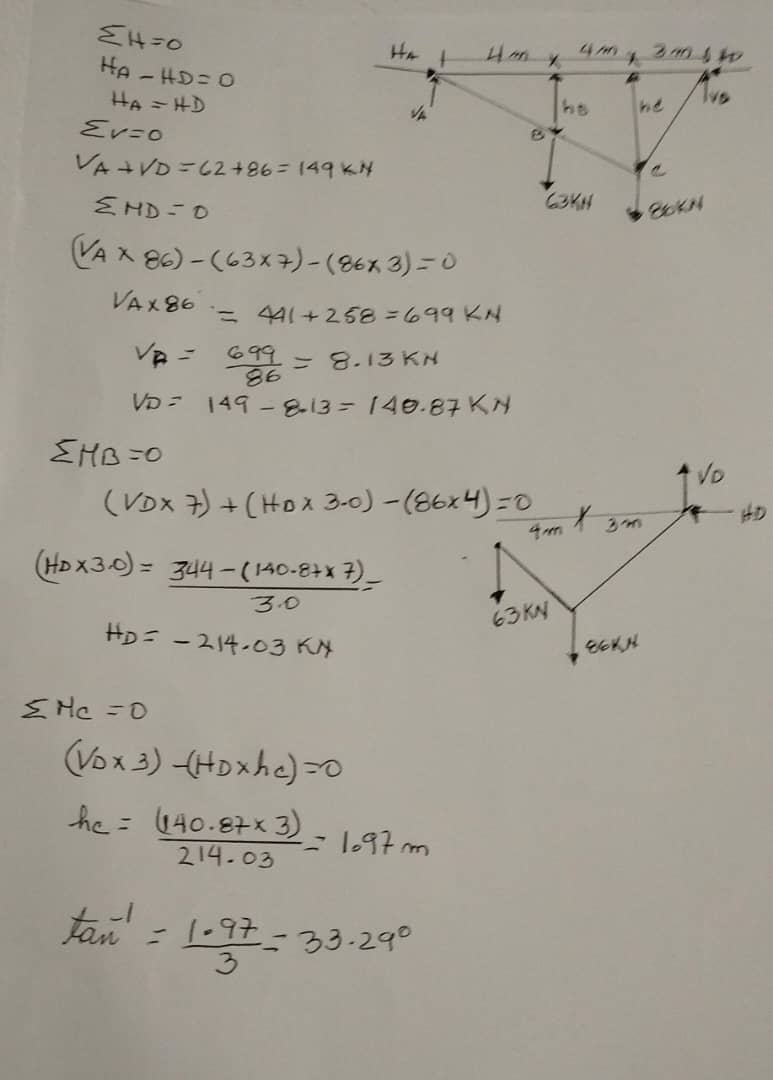 ΣH=0
HA - HD = 0
HA = HD
ΣV=0
VA + VD = 62 + 86 = 149 KN
ΣMD = 0
(VA x 86) - (63 x 7) - (86 x 3) = 0
VA x 86 = 441 + 258 = 699 KN
VA = 699/86 = 8.13 KN
VD = 149 - 8.13 = 140.87 KN
HA 4m x 4m x 3m HD
VA hB hc VD
B
C
63KN 86KN
ΣMB = 0
(VD x 7) + (HD x 3.0) - (86 x 4) = 0
(HD x 3.0) = 344 - (140.87 x 7)/3.0 =
HD = - 214.03 KN
VD
4m x 3m HD
63 KN
86KN
ΣMc = 0
(VD x 3) - (HD x hc) = 0
hc = (140.87 x 3)/214.03 = 1.97 m
tan⁻¹ = 1.97/3 = 33.29°